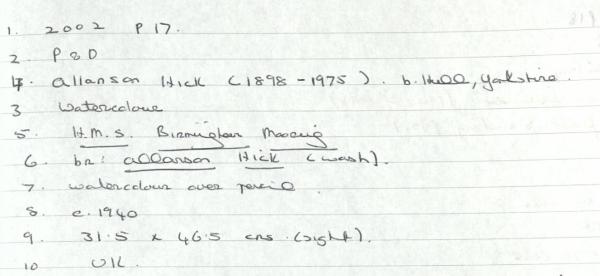 1. 2002 P 17.
2. P & D
4. Allanson Hick (1898 - 1975). b. Hull, Yorkshire.
3 Watercolour
5. H.M.S. Birmingham Mooring
6. br: Allanson Hick (wash).
7. watercolour over pencil.
8. c. 1940
9. 31.5 x 46.5 cms (sight).
10 UK.